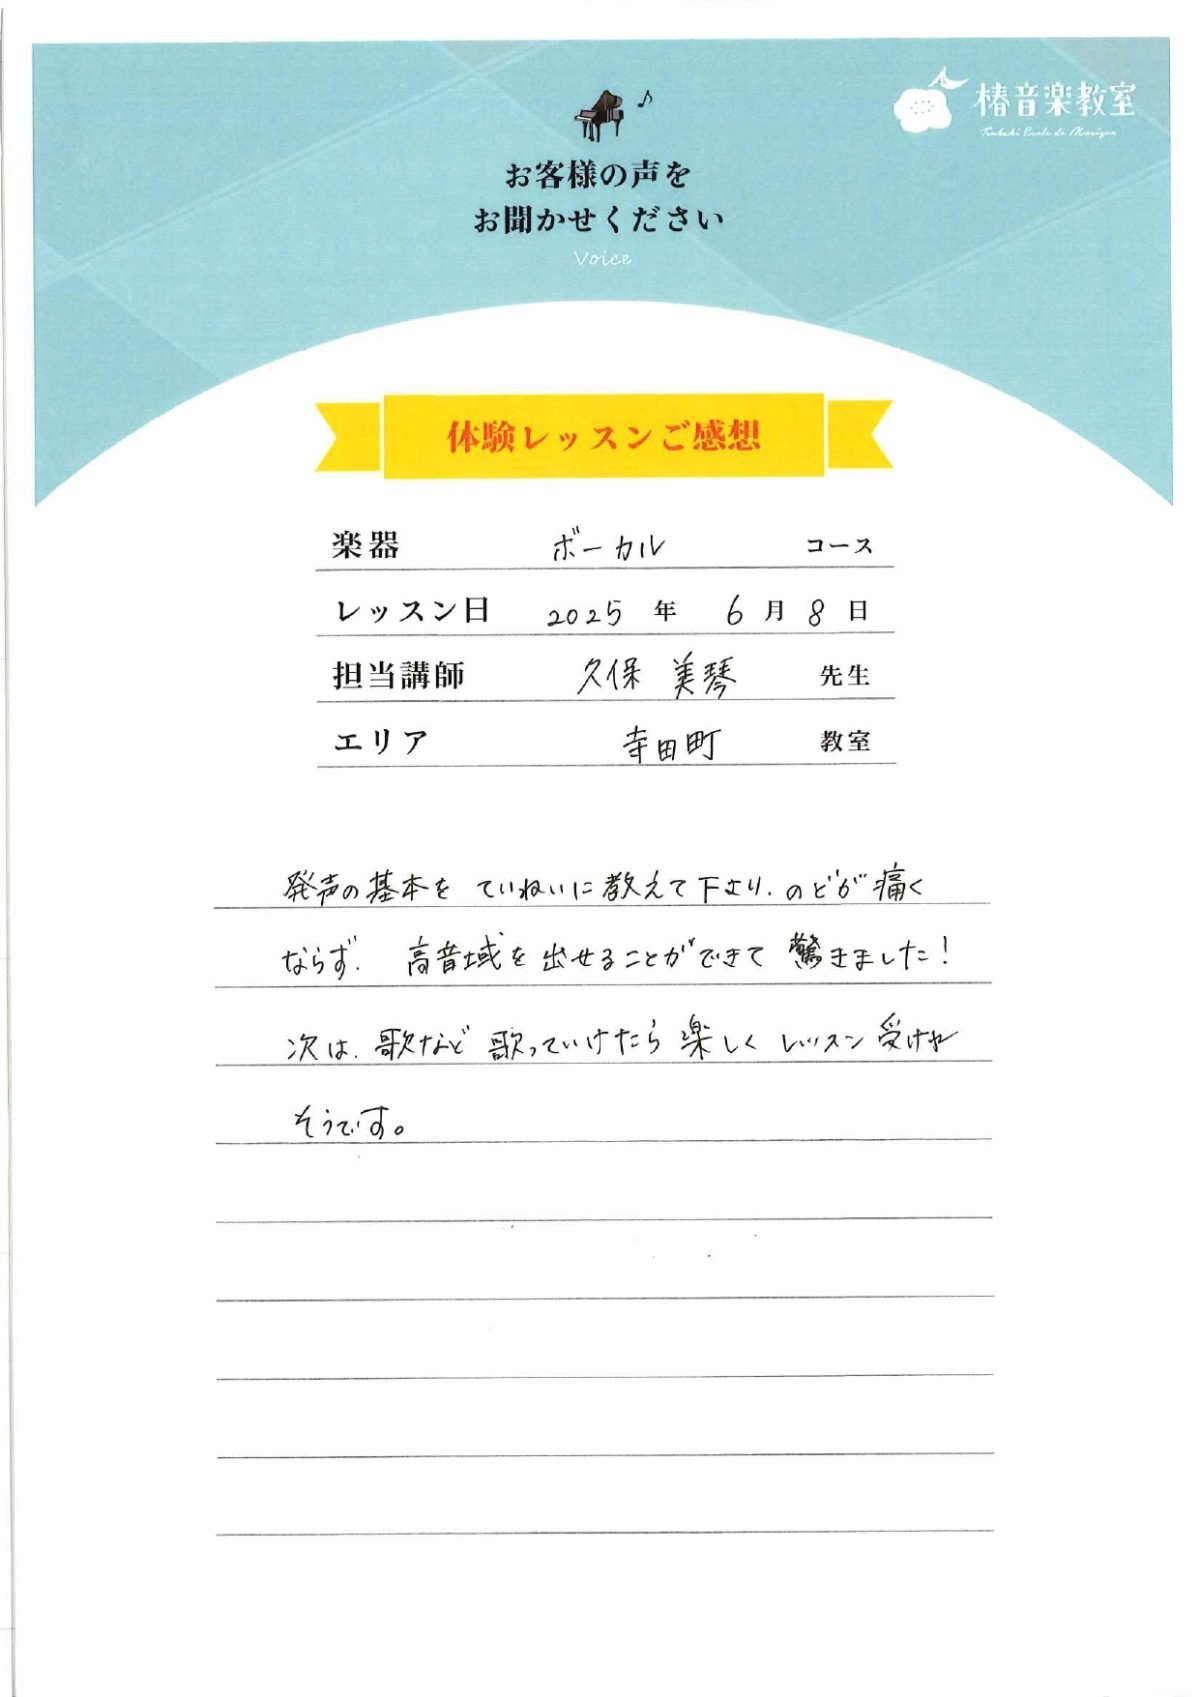 椿音楽教室
Tsubaki Ecole de Musique
お客様の声を
お聞かせください
Voice
体験レッスンご感想
楽器 ボーカル コース
レッスン日 2025 年 6 月 8 日
担当講師 久保 美琴 先生
エリア 寺田町 教室
発声の基本を ていねいに教えて下さり、のどが痛く
ならず、高音域を出せることができて 驚きました!
次は、歌など 歌っていけたら楽しく レッスン受けれ
そうです。